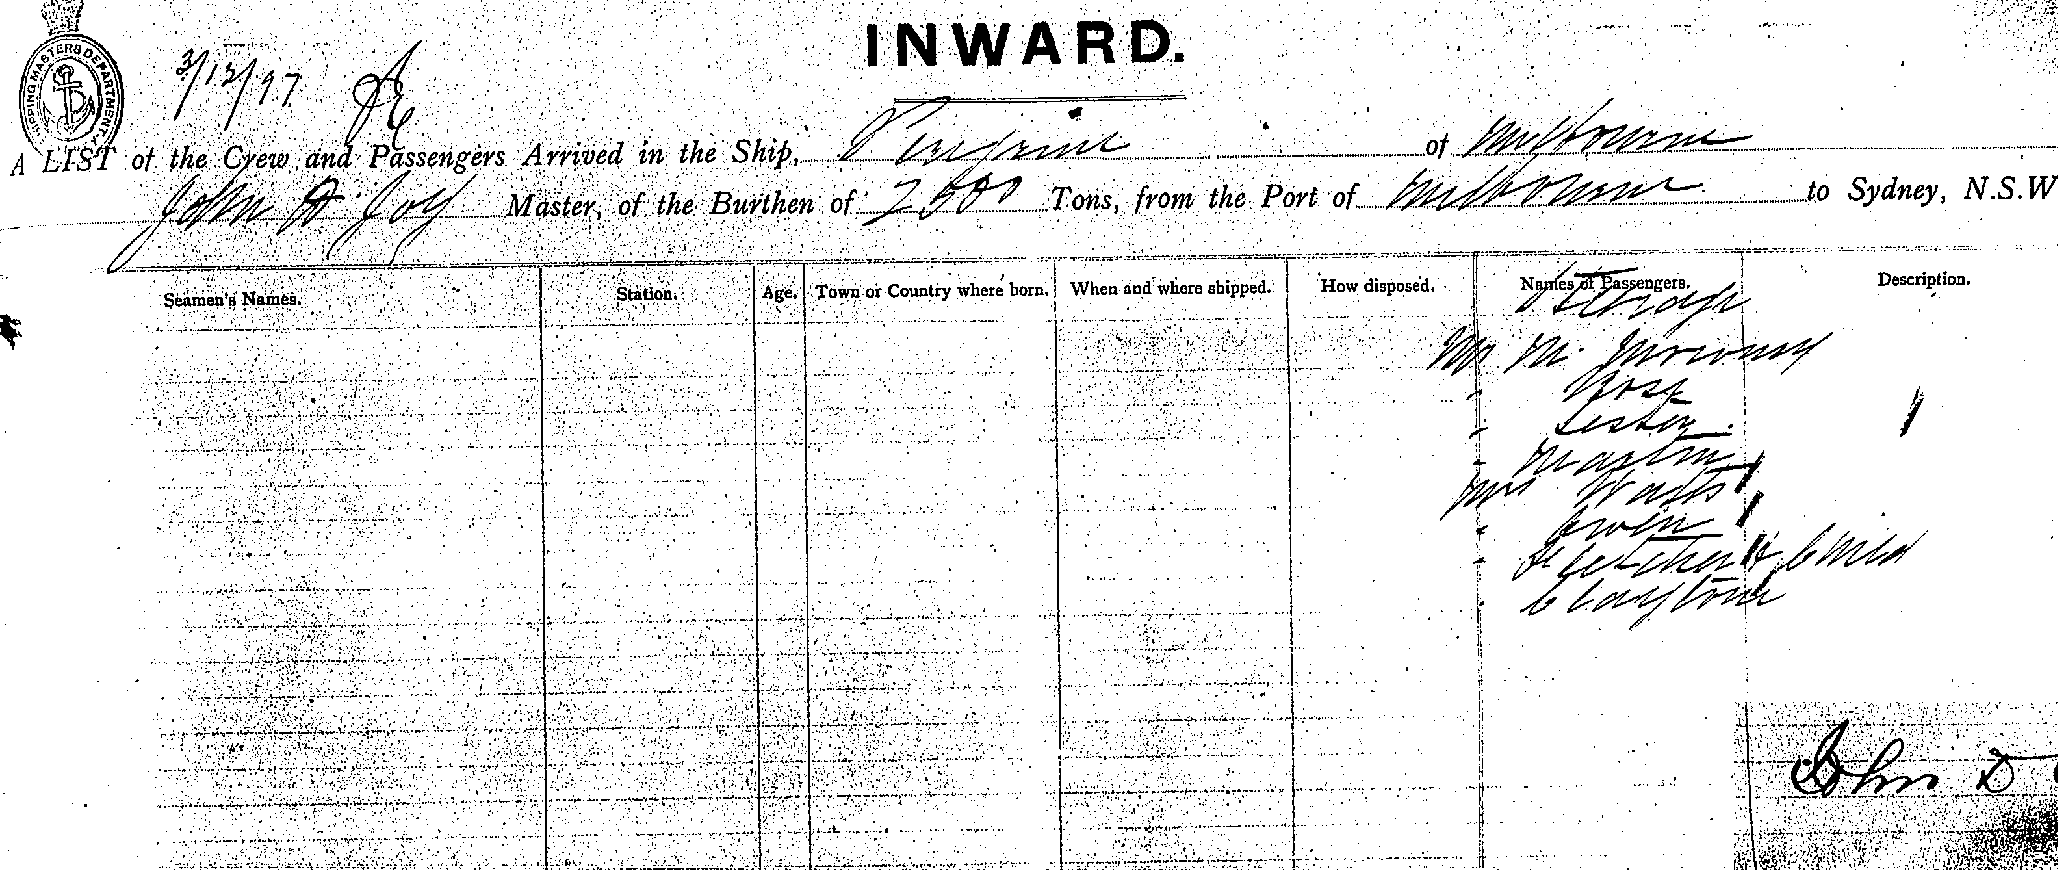 INWARD.
SHIPPING MASTERS DEPARTMENT.
3/12/97
A LIST of the Crew and Passengers Arrived in the Ship, Peregrine of Melbourne
John D. Joy Master, of the Burthen of 2500 Tons, from the Port of Melbourne to Sydney, N.S.W
Seamen's Names. Station. Age. Town or Country where born. When and where shipped. How disposed. Names of Passengers. Description.
Steerage
Mr M.
" Rose
" Lester
" Martin
Mrs Watts
" Owen
" Fletcher & Child
" Claystone
John D